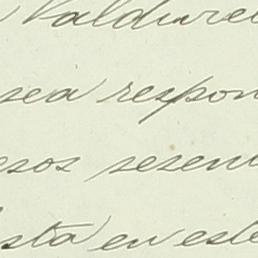 Valdivie
sea respon
esos sesen
sta en este